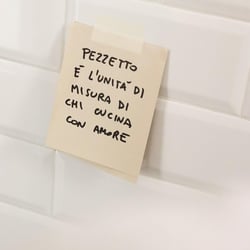 PEZZETTO
È L'UNITÀ DI
MISURA DI
CHI CUCINA
CON AMORE